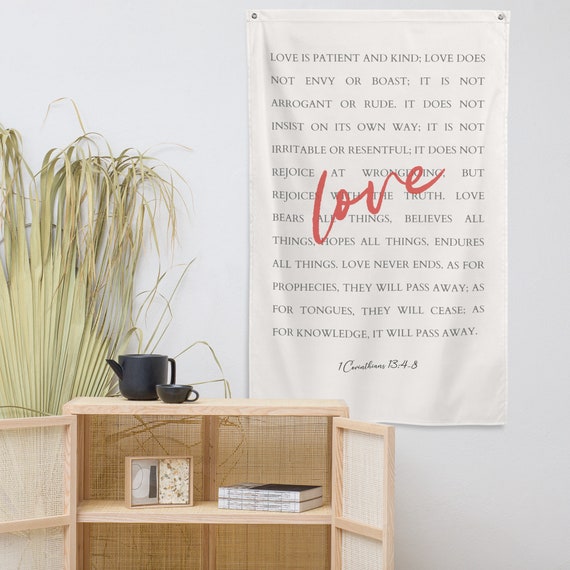 LOVE IS PATIENT AND KIND; LOVE DOES
NOT ENVY OR BOAST; IT IS NOT
ARROGANT OR RUDE. IT DOES NOT
INSIST ON ITS OWN WAY; IT IS NOT
IRRITABLE OR RESENTFUL; IT DOES NOT
REJOICE AT WRONGDOING, BUT
REJOICES WITH THE TRUTH. LOVE
love
BEARS ALL THINGS, BELIEVES ALL
THINGS, HOPES ALL THINGS, ENDURES
ALL THINGS. LOVE NEVER ENDS. AS FOR
PROPHECIES, THEY WILL PASS AWAY; AS
FOR TONGUES, THEY WILL CEASE; AS
FOR KNOWLEDGE, IT WILL PASS AWAY.
1 Corinthians 13:4-8